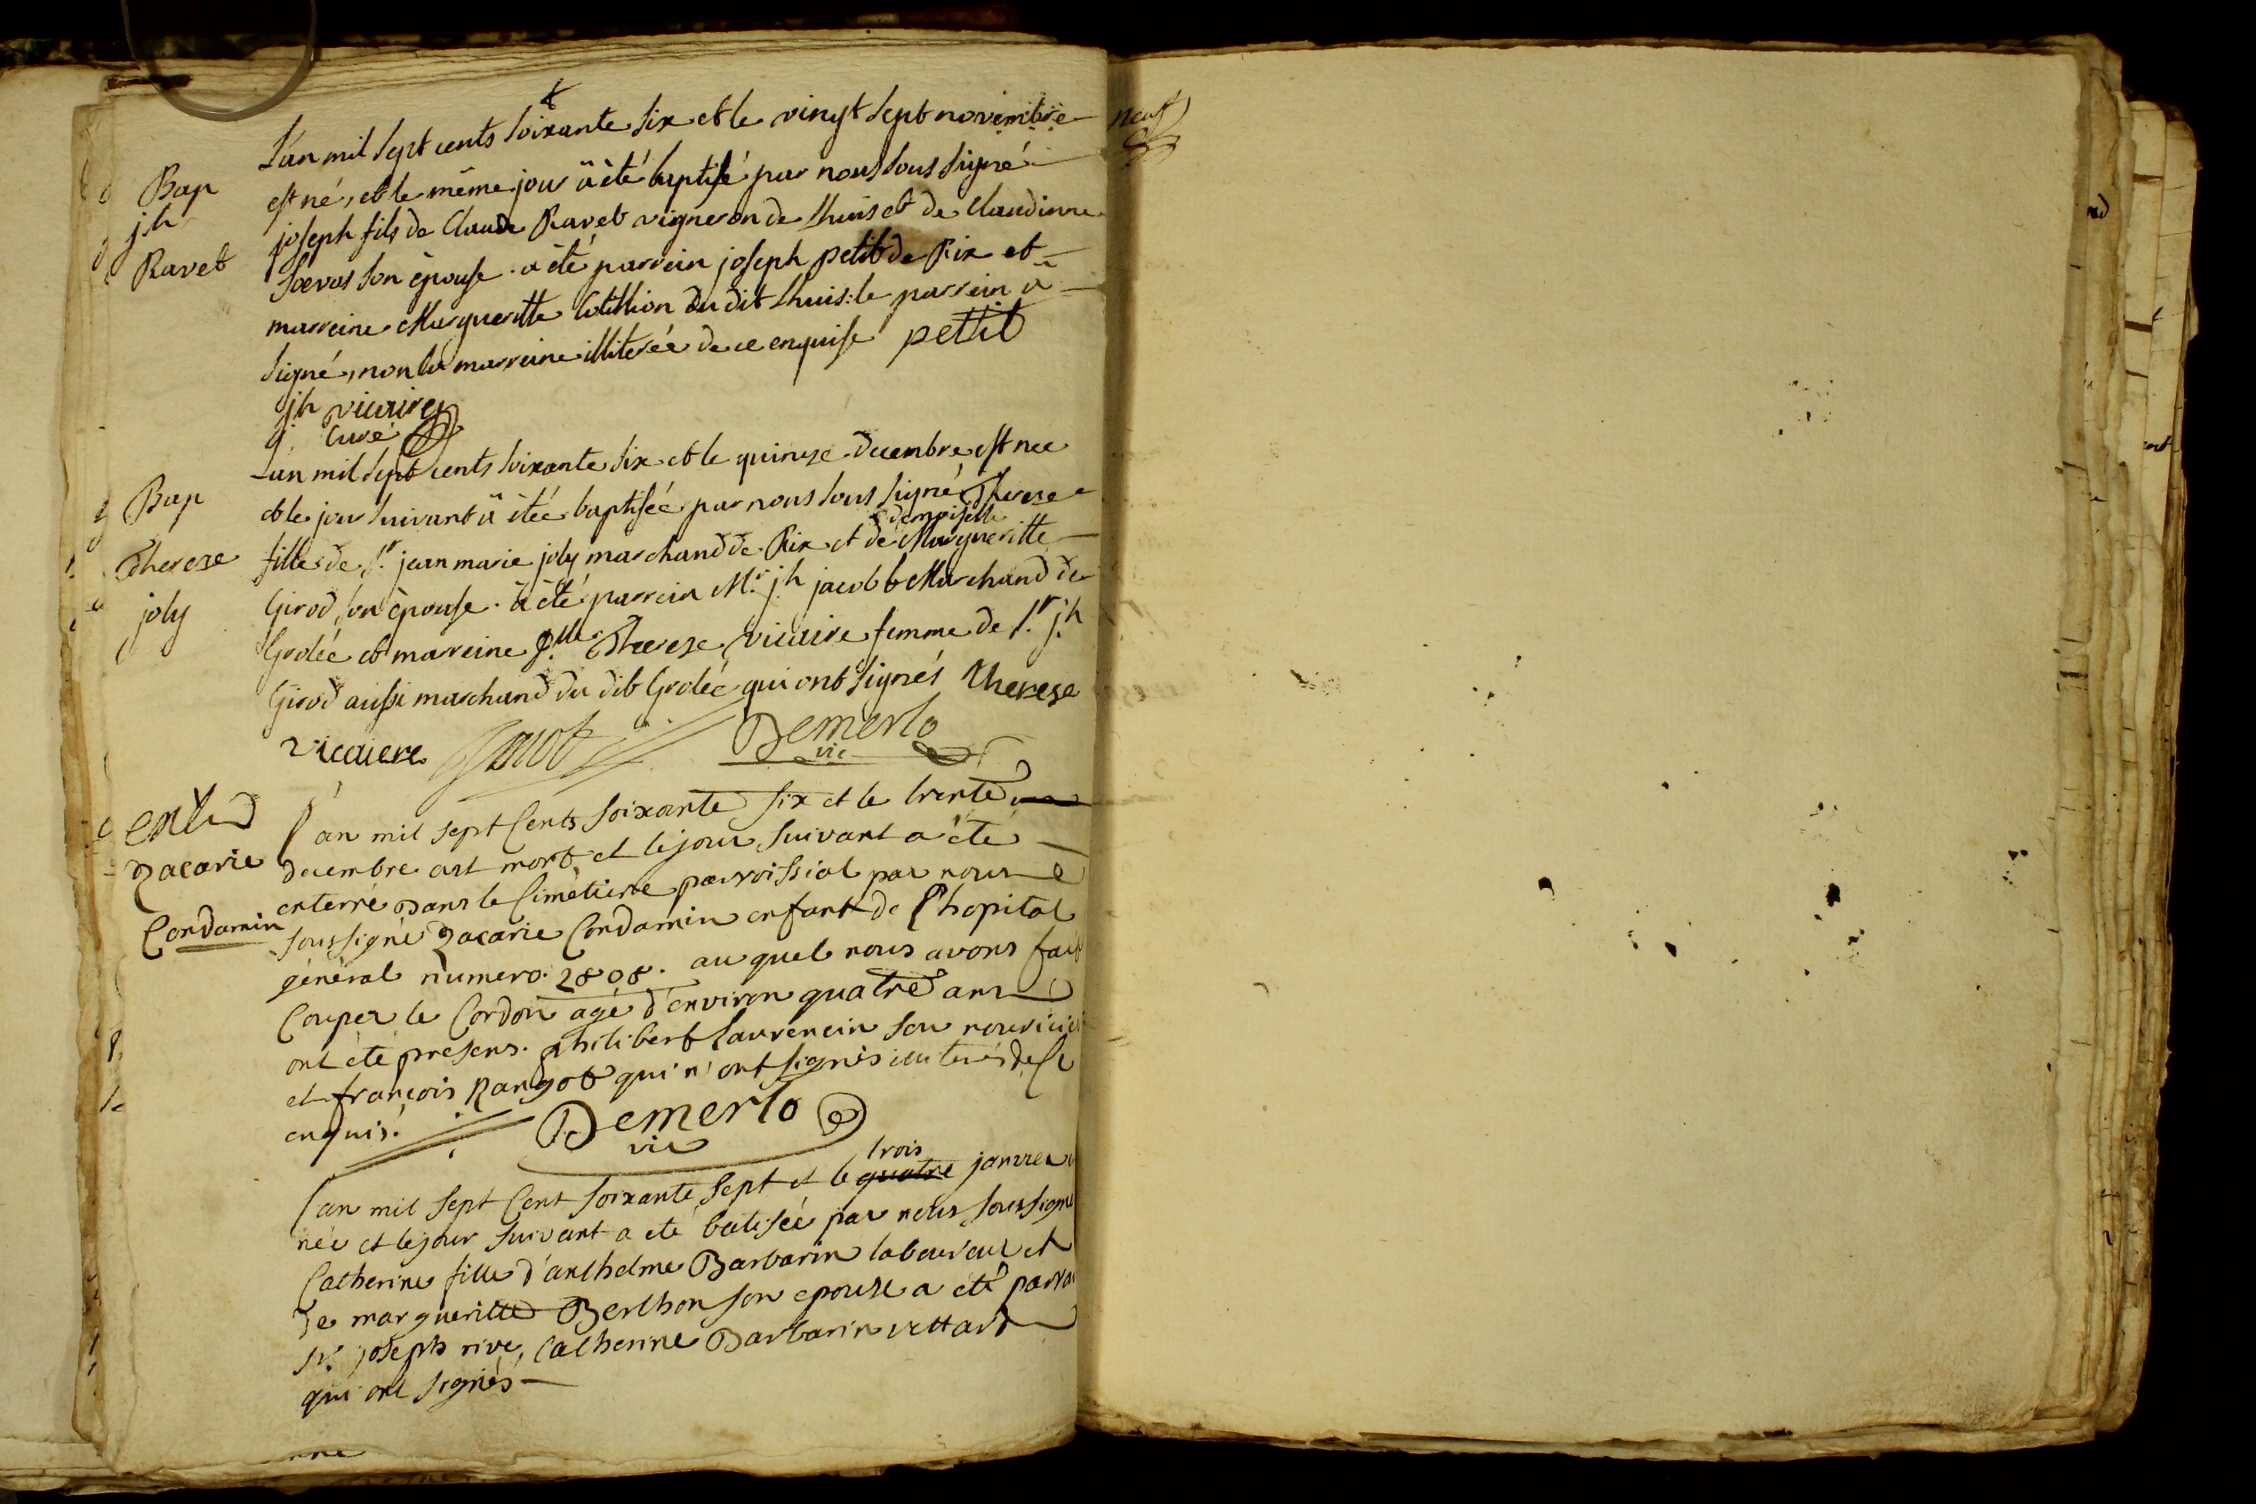 L'an mil sept cents soixante six et le vingt sept novembre
neuf
est né, et le même jour à été baptisé par nous sous signé
Bap
jh
Ravet
joseph fils de Claude Ravet vigneron de Lhuis et de Claudinne
son épouse. a été parrein joseph petit de Rix et
marreine Margueritte Cotillion du dit Lhuis: le parrein a
signé, non la marreine illiterée de ce enquise petit
jh vicaire
curé
L'an mil sept cents soixante six et le quinze decembre est née
Bap
Therese
joly
et le jour suivant à étée baptisée par nous sous signé Therese
demoiselle
fille de Sr. jean marie joly marchand de Rix et de Margueritte
Girod son épouse. à été parrein Mr. jh jacob Marchand de
Grolée et marreine Dlle Therese vicaire femme de Sr. jh
Girod aussi marchand du dit Grolée qui ont signés therese
vicaiere Demerlo
vic
ent
Zacarie
Condamin
l'an mil sept Cents soixante six et le trente
decembre est mort et le jour suivant a été
enterré dans le Cimétiere parroissial par nous
soussigné Zacarie Condamin enfant de l'hopital
général numero. 2808. au quel nous avons fait
Couper le Cordon agé d'environ quatre ans
ont été presens. philibert Laurencin son
et françois Rangot qui n'ont signés de Ce
enquis.
Demerlo
vic
trois
l'an mil sept Cent soixante sept et le quatre janvier
née et le jour suivant a eté batisée par nous soussigné
Catherine fille d'anthelme Barbarin laboureur et
de margueritte Berthon son epouse a été
Sr. joseph rive, Catherine Barbarin vettard
qui ont signés